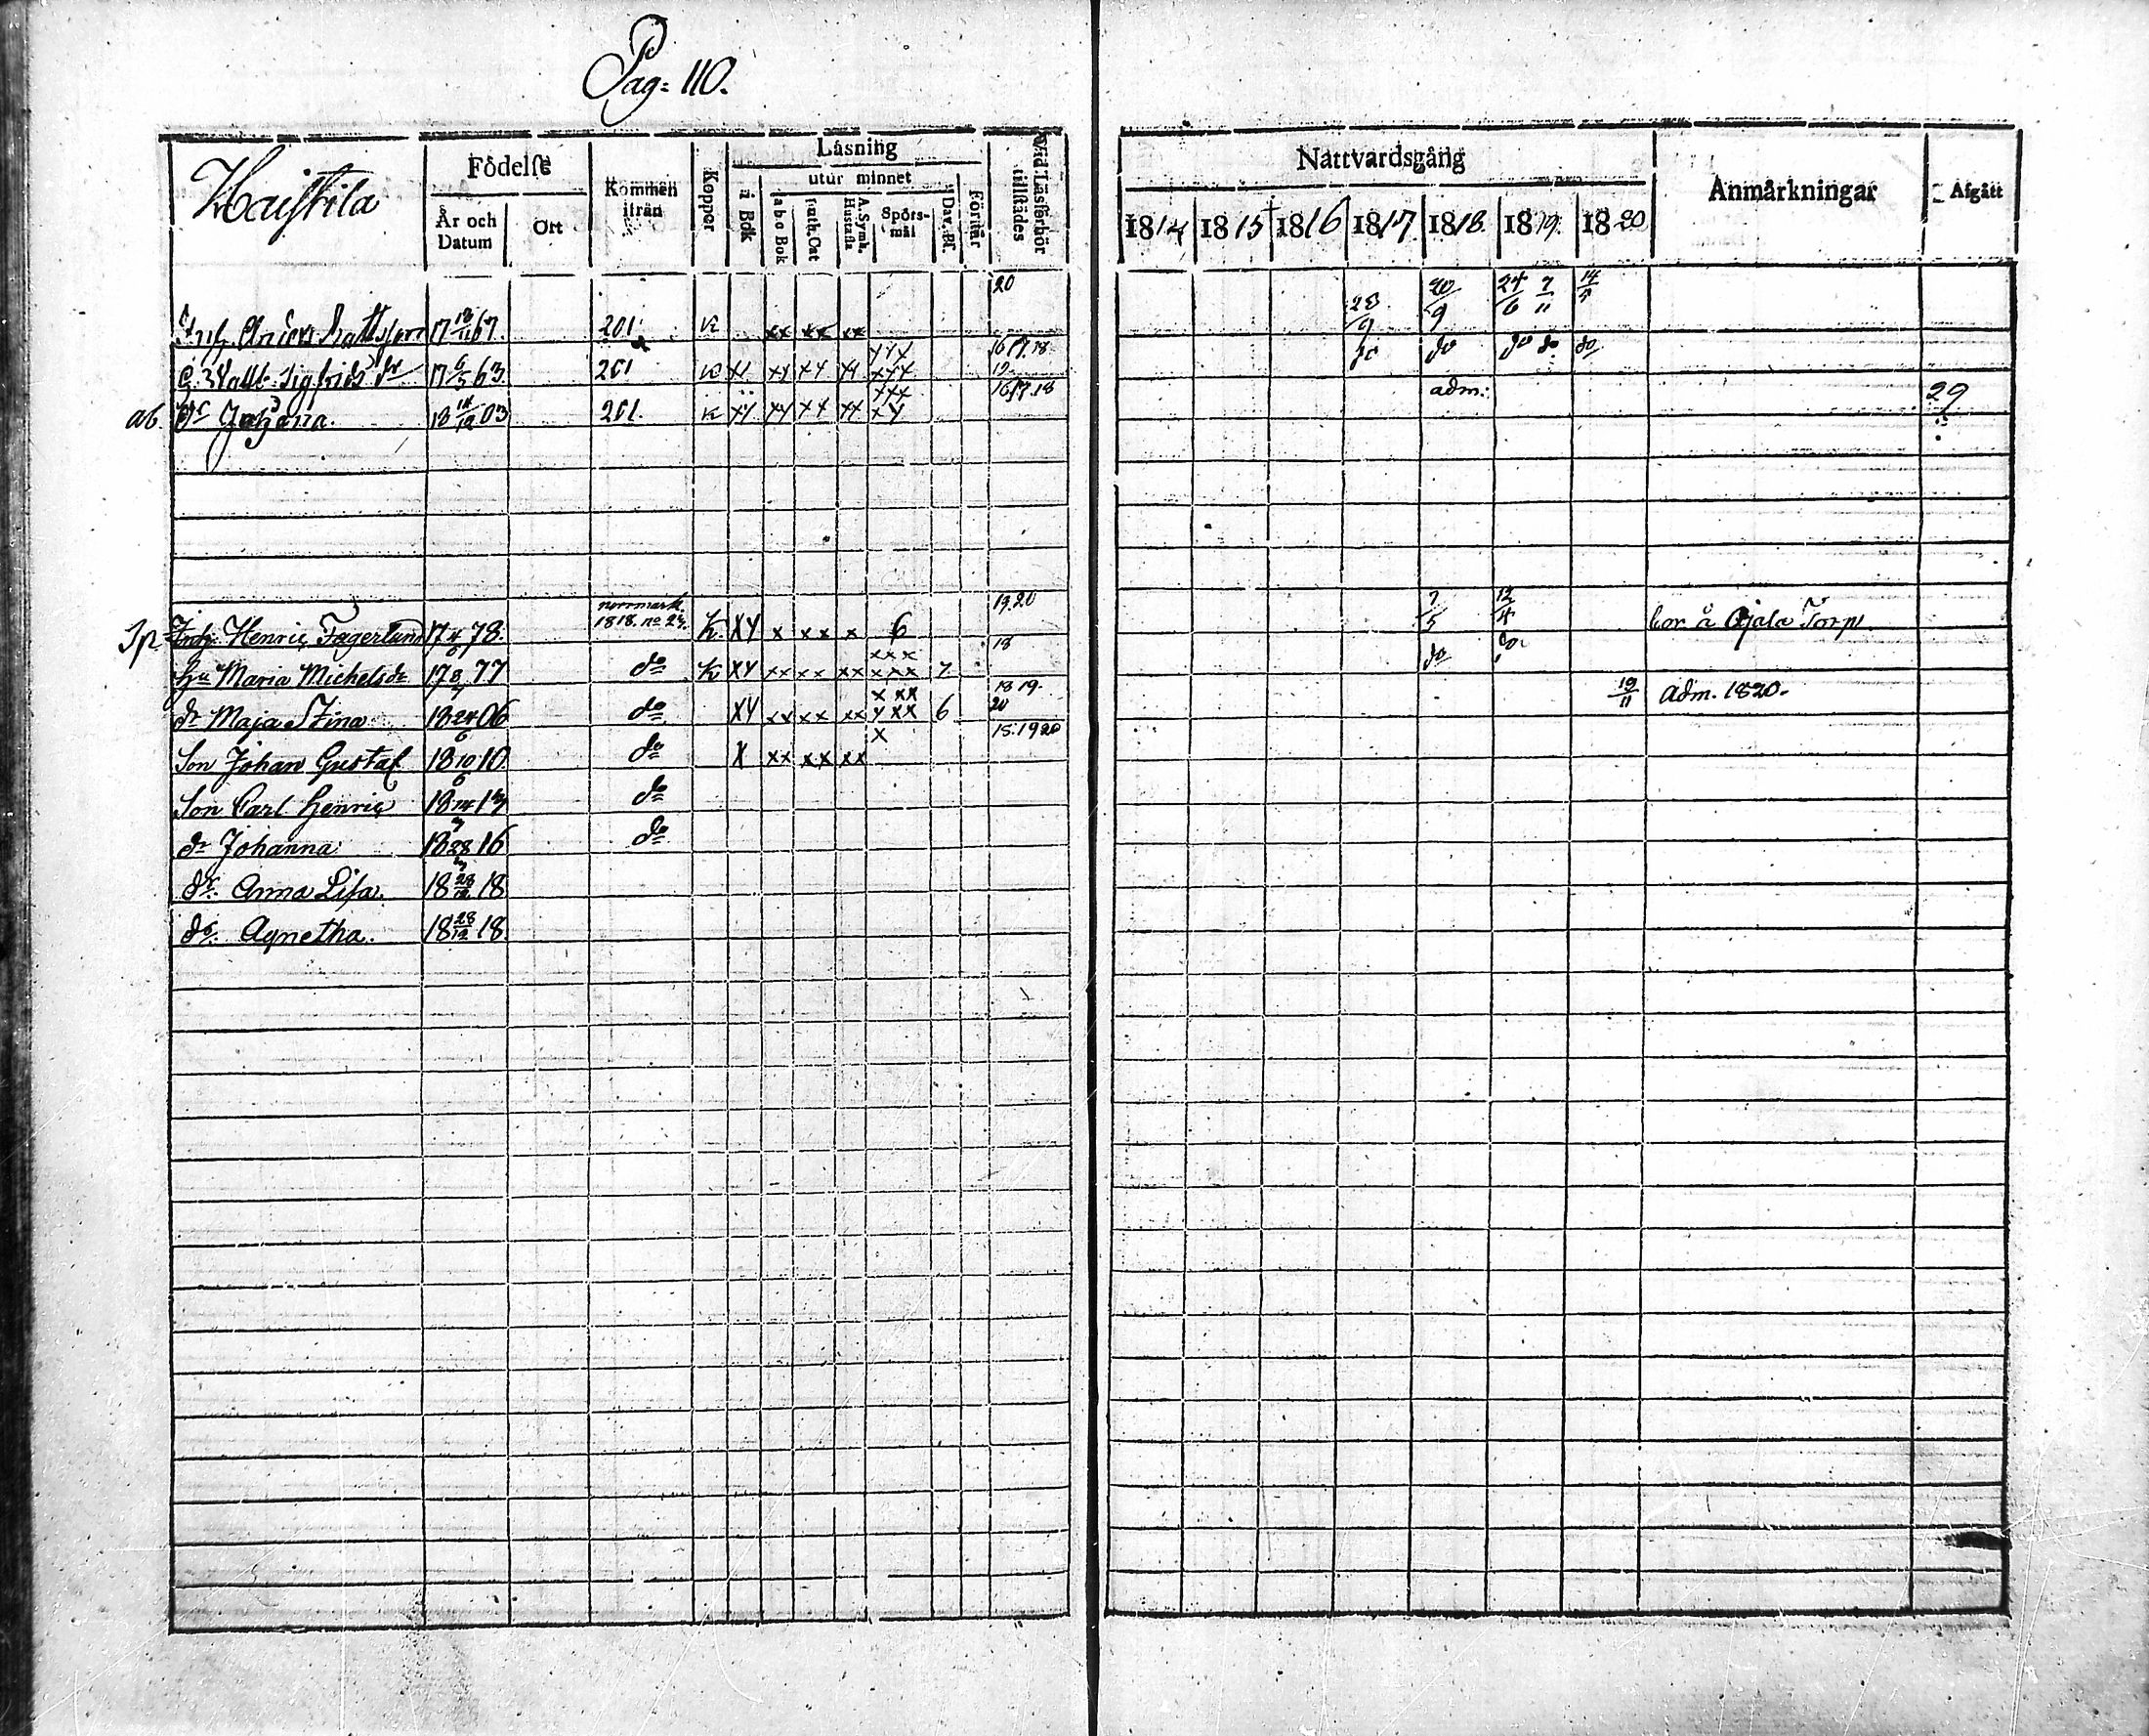 Pag: 110.
Haistila
Födelse
År och Datum
Ort
Kommen ifrån
Koppor
Läsning
i Bok
utur minnet
a b c Bok
Luth. Cat
A. Symb. Hustafla
Spörs-mål
Dav. Ps.
Förstår
Wid Läsförhör tillstädes
Nattvardsgång
1814 1815 1816 1817 1818. 1819. 1820
Anmärkningar
Afgått
Anders Mattsson 17 18/11 67. 201. K xx xx xx 20 28/9 20/9 24/6 7/11 14/5
Walb. Sigfrids dr 17 6/3 63. 201 K xy xy xy xy xyx 16 17. 18 19 do do do do do
ab. dr Johanna. 18 03 201. K xy xy xy xy xxx xy 16 17. 18 adm: 29
Inh. Henric Fagerlund 17 4/6 78. norrmark. 1818. no 23. K. XY x xx x 6 19. 20 7/5 12/4 bor å Ojala Torp
hu Maria Michelsdr 17 8/4 77 do K XY xx xx xx xxx xxx 7 18 do do
dr Maja Stina 18 24/6 06 do XY xx xx xx x xx y xx 6 18 19. 20 19/11 adm. 1820.
Son Johan Gustaf 18 10/6 10 do X xx xx xx x 18. 19 20
Son Carl Henric 18 14 13 do
dr Johanna 18 28 16 do
dr. Anna Lisa. 18 28/12 18
dr. Agnetha. 18 28/12 18.